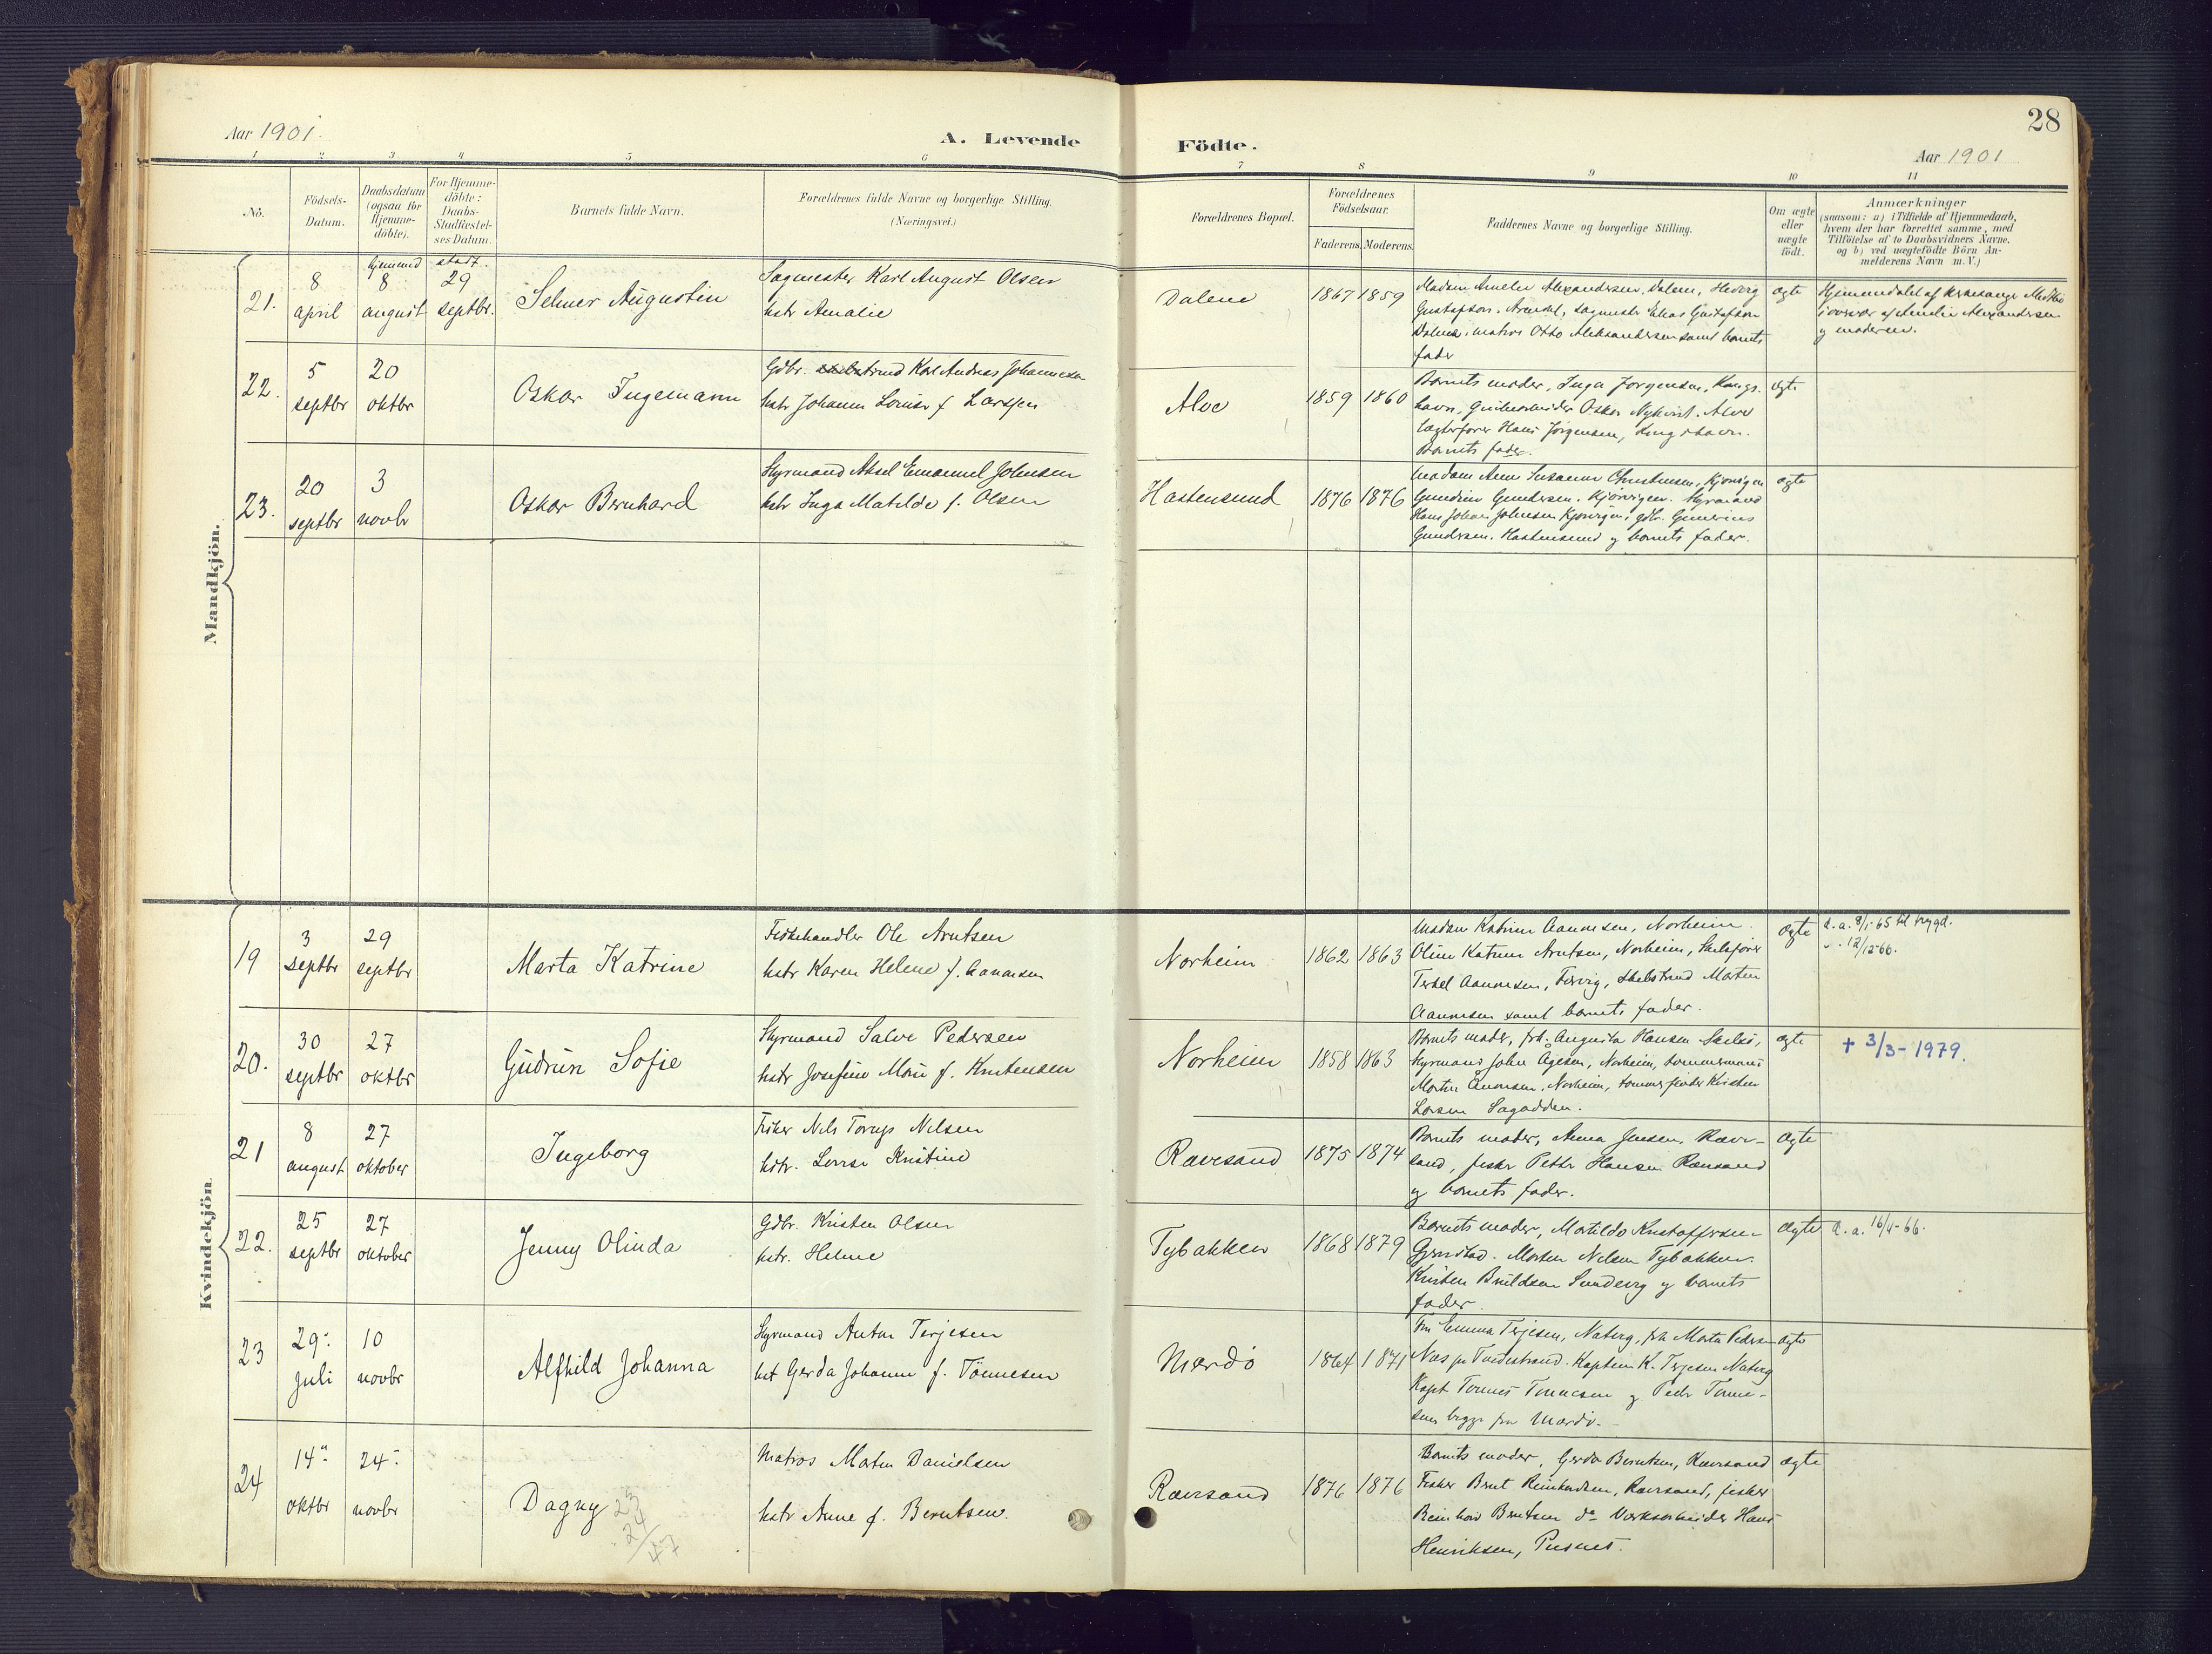 28
Aar 1901.
A. Levende
Födte.
Aar 1901
1 2 3 4 5 6 7 8 9 10 11
No.
Födsels-
Datum.
Daabsdatum
(ogsaa for
Hjemme-
döbte).
For Hjemme-
döbte:
Daabs-
Stadfæstel-
ses Datum.
Barnets fulde Navn.
Forældrenes fulde Navne og borgerlige Stilling.
(Næringsvei.)
Forældrenes Bopæl.
Forældrenes
Födselsaar.
Faderens. Moderens.
Faddernes Navne og borgerlige Stilling.
Om ægte
eller
uægte
födt.
Anmærkninger
(saasom: a) i Tilfælde af Hjemmedaab,
hvem der har forrettet samme, med
Tilföielse af to Daabsvidners Navne.
og b) ved uægtefödte Börn An-
melderens Navn m. V.)
Mandkjön.
21.
8
april
8
august
stadf.
29
septbr.
Selmer Augustin
Sagmester Karl August Olsen
hstr Amalie
Dalene
1867 1859
Gustafson, Arendal, sagmestr Elias Gustafson
Dalene, matros Otto Aleksandersen samt barnets
fader
ægte
og moderen.
22.
5
septbr
20
oktbr
Oskar Ingemann
Gdbr. Karl Andreas Johannesen
hstr Johanne Louise f. Larssen
Alve
1859 1860
Barnets moder, Inga Jørgensen, Kongs-
havn, Oskar Nykvist, Alve
Hans Jørgensen, Kongshavn.
Barnets fader.
ægte
23.
20
septbr
3
novbr
Oskar Bernhard
Styrmand Aksel Emanuel Johnsen
hstr Inga Matilde f. Olsen
Hastensund
1876 1876
Madam Anne Susanne Christensen, Kjørvigen
Gundersen, Kjørvigen, Styrmand
Hans Johan Johnsen Kjørvigen, gdbr. Gunerius
Gundersen, Hastensund og barnets fader.
ægte
Kvindekjön.
19
3
septbr
29
septbr
Marta Katrine
Fiskehandler Ole Arntsen
hstr Karen Helene f. Aanonsen
Norheim
1862 1863
Madam Katrine Aanonsen, Norheim.
Oline Katrine Arntsen, Norheim, Skibsfører
Terkel Aanonsen, Morten
Aanonsen samt barnets fader.
ægte
d. a. 8/1-65 til trygd.
" - 12/12-60.
20.
30
septbr
27
oktbr
Gudrun Sofie
Styrmand Salve Pedersen
hstr Josefine Marie f. Knutensen
Norheim
1858 1863
Barnets moder, frk. Augusta Hansen
Styrmand John Ågesen, Norheim, tømmermand
Morten Aanonsen, Norheim, Kristen
Larsen Sagodden.
ægte
† 3/3-1979.
21
8
august
27
oktober
Ingeborg
Fisker Nils Torups Nilsen
hstr. Lovise Kristine
Ravesand
1875 1874
Barnets moder, Anna Jensen, Ræve-
sand, fisker Petter Hansen Rævesand
og barnets fader.
ægte
22.
25
septbr
27
oktober
Jenny Olinda
Gdbr. Kristen Olsen
hstr. Helene
Tybakken
1868 1879
Barnets moder, Matilde Kristoffersen
Gjerrestad. Morten Nilsen Tybakken.
Kristen og barnets
fader.
ægte
d. a. 16/4-66.
23
29
juli
10
novbr
Alfhild Johanna
Styrmand Anton Terjesen
hst Gerda Johanne f. Tönnesen
Mærdö
1864 1871
Fru Emma Terjesen, Natvig, frk Marta Pedersen
Næs pr Tvedestrand. Kaptein K. Terjesen Natvig
Kapt Tönnes Tönnesen og Peder Tönne-
sen begge fra Mærdö.
ægte
24
14
oktbr
24
novbr
Dagny
23
24
47
Matros Morten Danielsen
hstr Anne f. Berntsen.
Rævesand
1876 1876
Barnets moder, Gerda Berntsen, Rævesand
Fisker Bernt Reinhardsen, Rævesand, fisker
Reinhard Berntsen do Verksarbeider Hans
Henriksen, Pusnes.
ægte